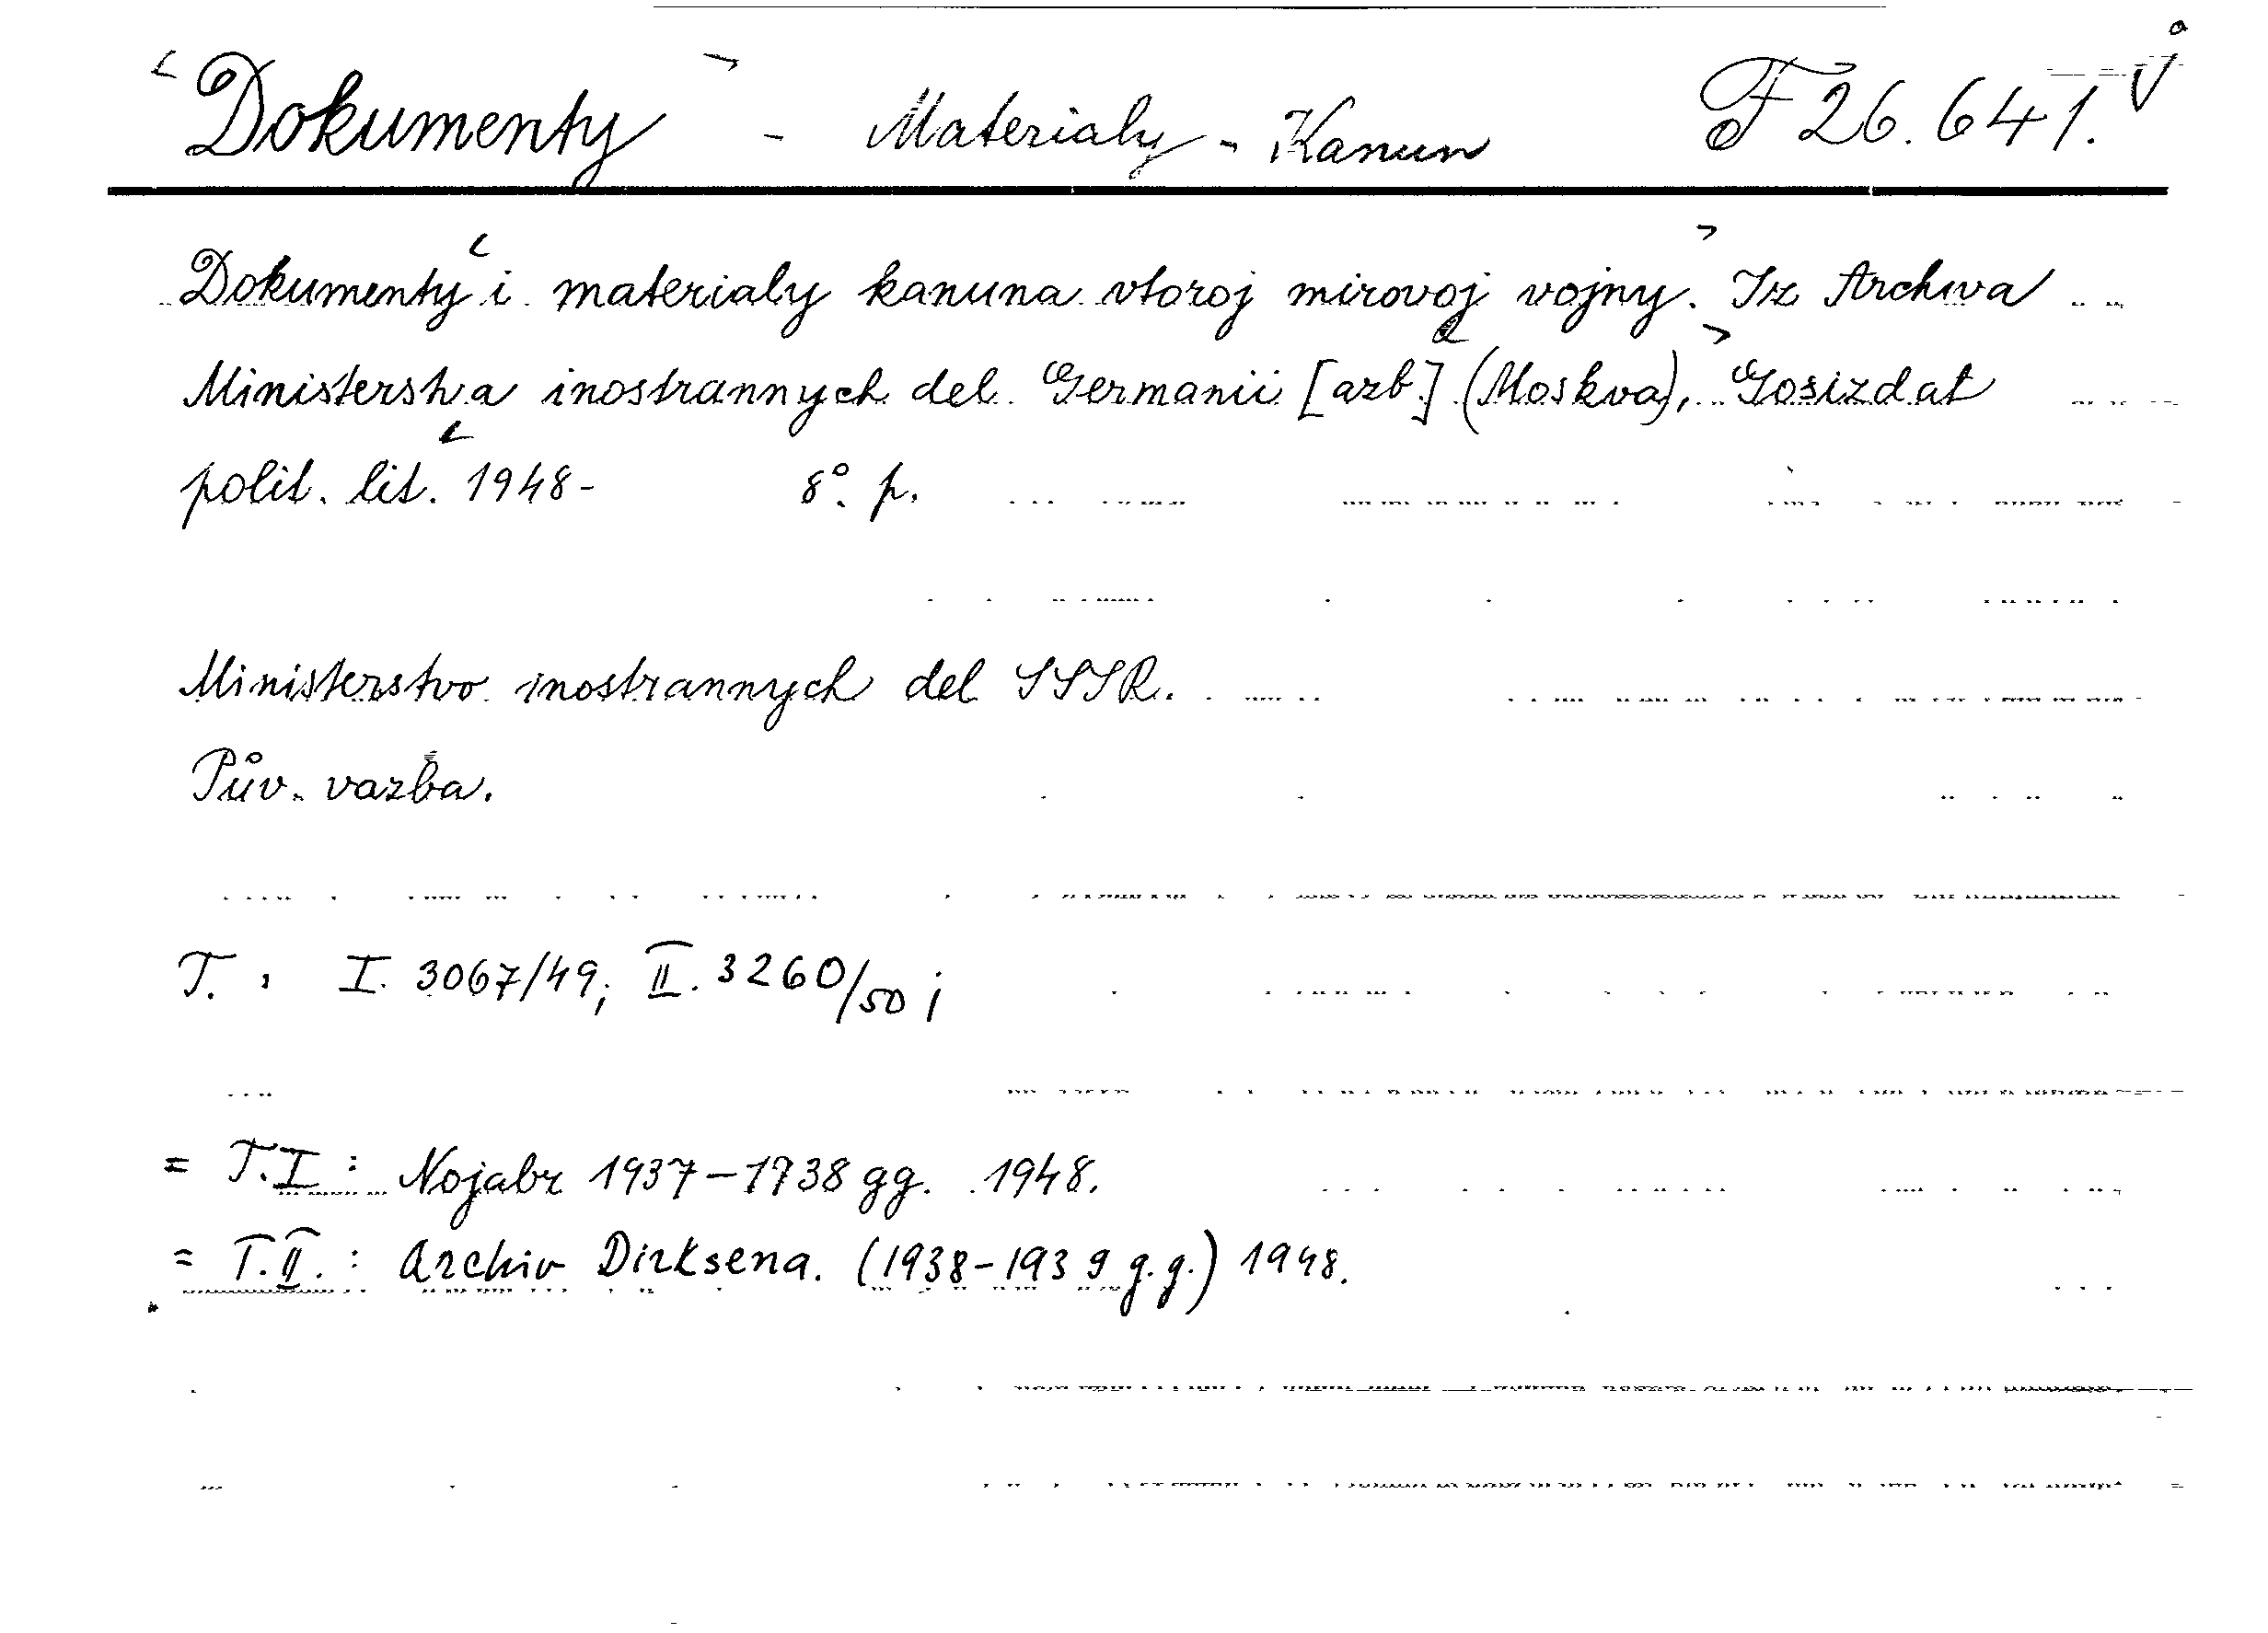 Dokumenty - Materialy - Kanun F 26.641.
Dokumenty i materialy kanuna vtoroj mirovoj vojny. Iz Archiva
Ministerstva inostrannych del Germanii [azb.] (Moskva), Gosizdat
polit. lit. 1948- 8°. p.
Ministerstvo inostrannych del SSSR.
Pův. vazba.
T. : I. 3067/49; II. 3260/50;
= T.I : Nojabr 1937-1938 gg. 1948.
= T.II. : Archiv Dirksena. (1938-1939 g.g.) 1948.